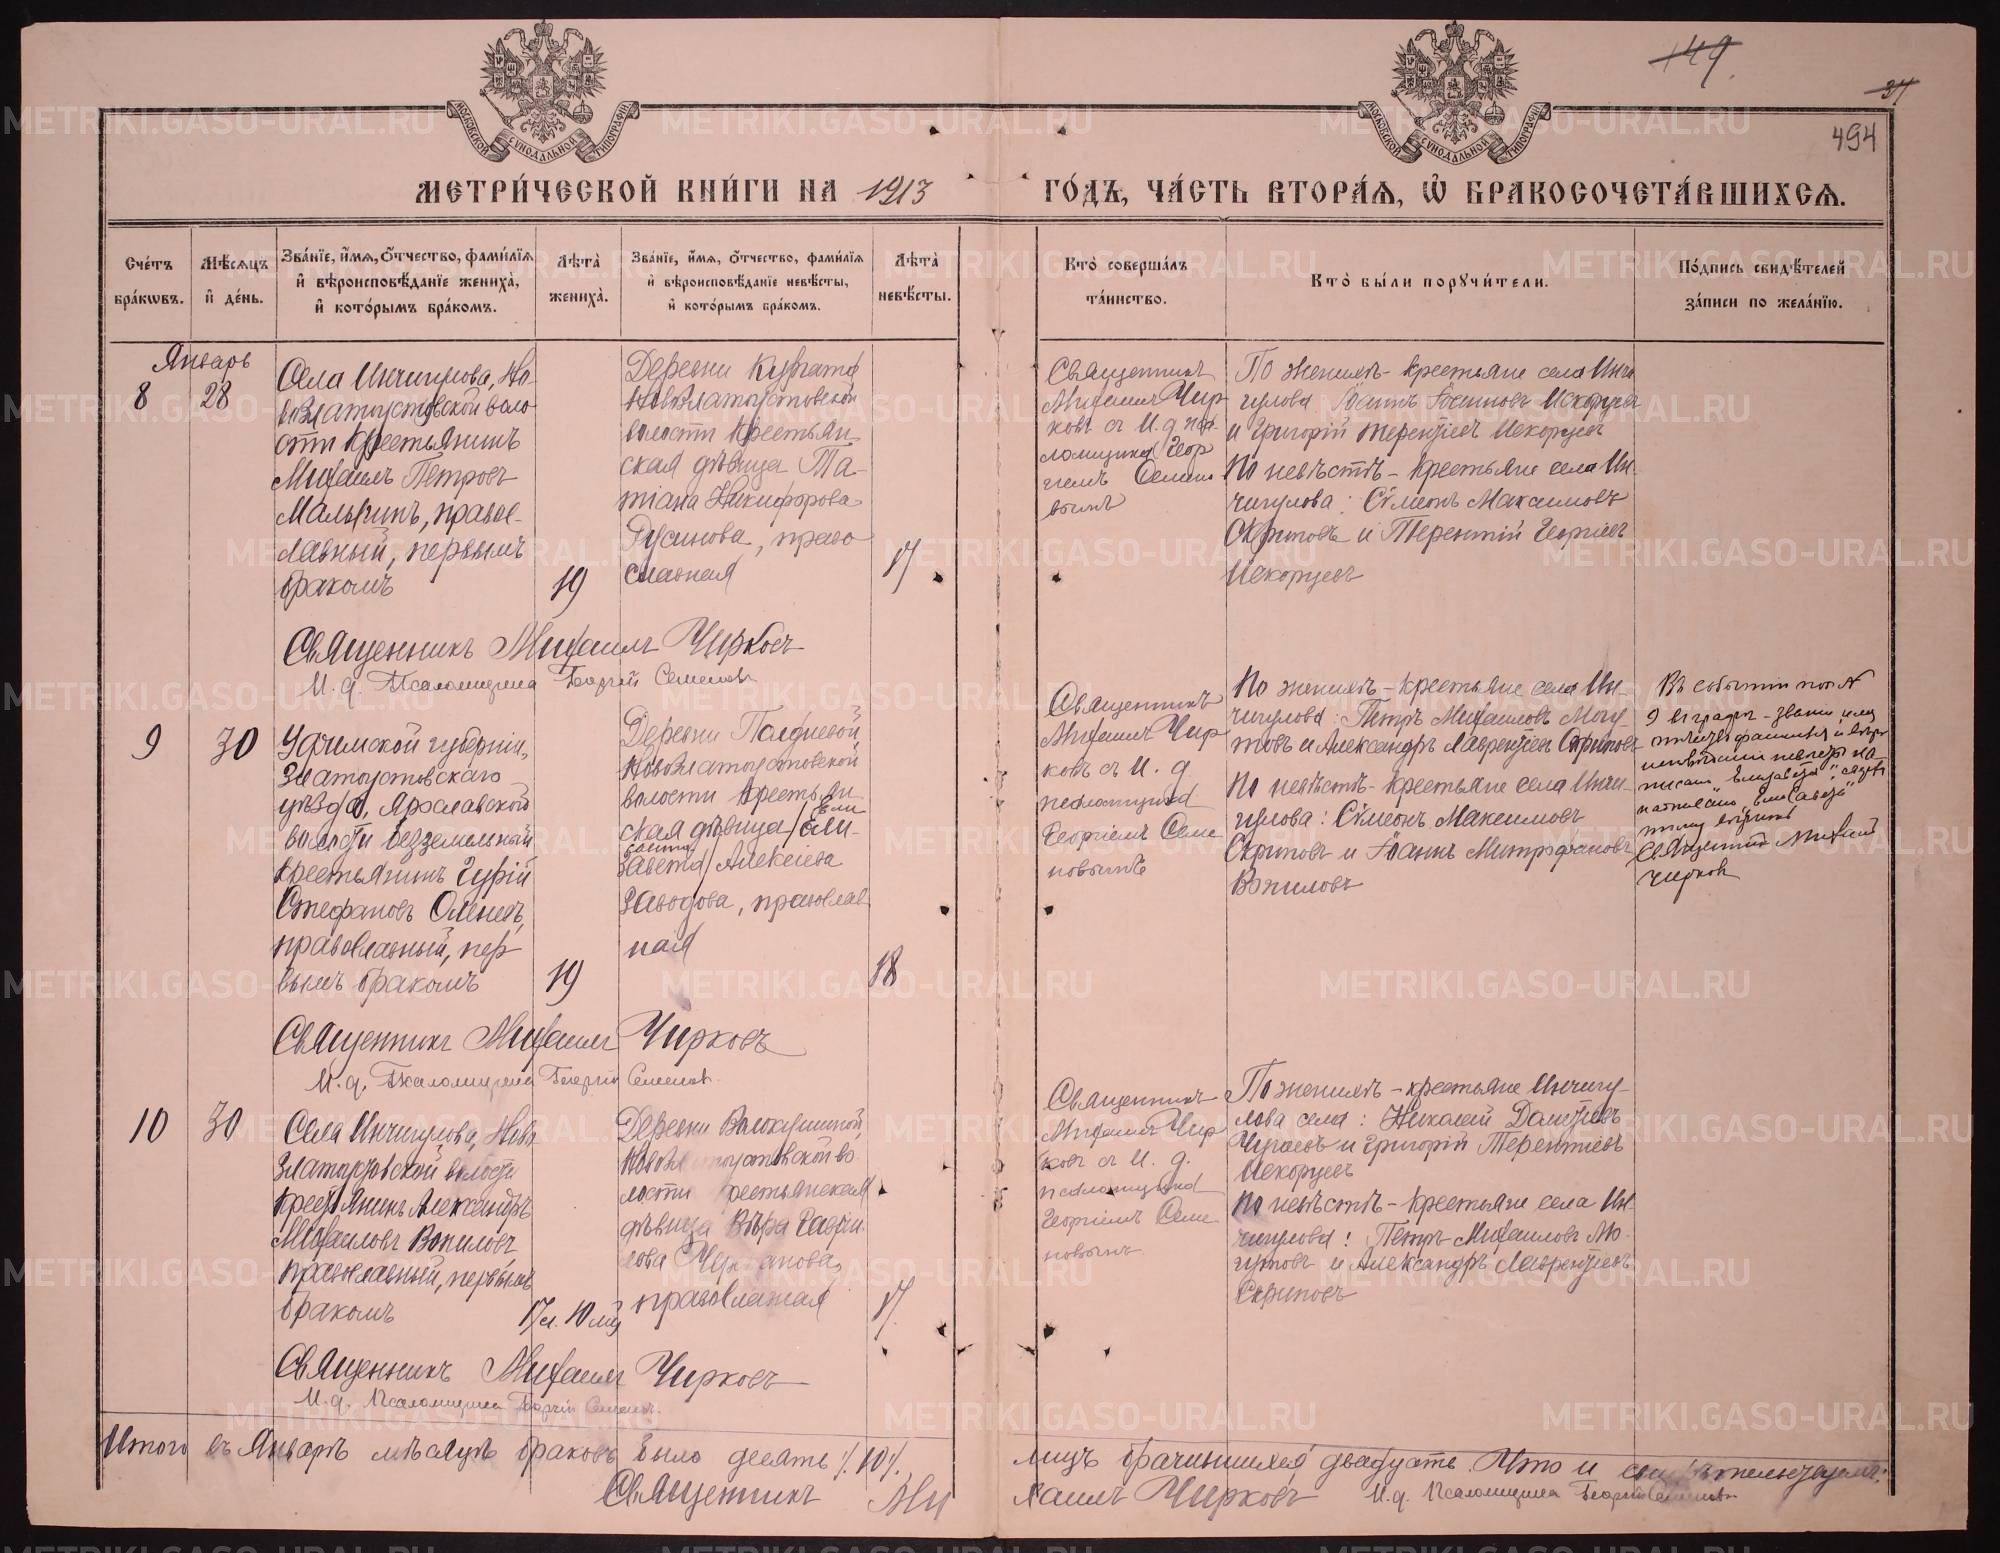 149
37
494
МОСКОВСКОЙ СѴНОДАЛЬНОЙ ТИПОГРАФІИ
МОСКОВСКОЙ СѴНОДАЛЬНОЙ ТИПОГРАФІИ
МЕТРИ́ЧЕСКОЙ КНИ́ГИ НА 1913
ГО́ДЪ, ЧА́СТЬ ВТОРА́Ѧ, Ѡ҆ БРАКОСОЧЕТА́ВШИХСѦ.
Сче́тъ
бра́кѡвъ.
Мѣ́сѧцъ
и҆ де́нь.
Зва́нїе, и҆́мѧ, ѻ҆́тчество, фами́лїѧ
и҆ вѣроисповѣ́данїе жениха̀,
и҆ кото́рымъ бра́комъ.
Лѣ̑та̀
жениха̀.
Зва́нїе, и҆́мѧ, ѻ҆́тчество, фами́лїѧ
и҆ вѣроисповѣ́данїе невѣ́сты,
и҆ кото́рымъ бра́комъ.
Лѣ̑та̀
невѣ́сты.
Кто̀ соверша́лъ
та́инство.
Кто̀ бы́ли порꙋчи́тели.
По́дпись свидѣ́телей
за́писи по жела́нїю.
Январь
8
28
Села Инчигулова, Но-
возлатоустовской воло
сти крестьянинъ
Михаилъ Петровъ
Малыгинъ, правос-
лавный, первымъ
бракомъ
19
Деревни
Новозлатоустовской
волости крестьян
ская дѣвица Та-
тіана Никифорова
Русинова, право
славная
17
Священникъ
Михаилъ Чир
ковъ съ И. д. пса
ломщика Геор
гіемъ Семено
вымъ
По женихѣ - крестьяне села Инчи
гулова Іоаннъ Искорцевъ
и Григорій Терентіевъ Искорцевъ
По невѣстѣ - крестьяне села Ин-
чигулова: Сѵмеонъ Максимовъ
Скриповъ и Терентій Георгіевъ
Искорцевъ
Священникъ Михаилъ Чирковъ
И. д. Псаломщика Георгій Семеновъ
9
30
Уфимской губерніи,
Златоустовскаго
уѣзда, Ярославской
волости безземельный
крестьянинъ Гурій
Стефановъ Оленевъ,
православный, пер
вымъ бракомъ
19
Деревни Полдневой,
Новозлатоустовской
волости крестьян
ская дѣвица
Алексіева
Заводова, православ
ная
18
Священникъ
Михаилъ Чир
ковъ съ И. д
псаломщика
Георгіемъ Семе
новымъ
По женихѣ - крестьяне села Ин-
чигулова: Петръ Михаиловъ Могу
товъ и Александръ Лаврентіевъ Скриповъ
По невѣстѣ - крестьяне села Инчи-
гулова: Сѵмеонъ Максимовъ
Скриповъ и Іоаннъ Митрофановъ
Вопиловъ
Въ событіи подъ №
9 въ графѣ - званіе имя
отчество фамилія и вѣро
исповѣданіе невѣсты на-
писано
Священникъ Михаилъ
Чирковъ
Священникъ Михаилъ Чирковъ
И. д. Псаломщика Георгій Семеновъ
10
30
Села Инчигулова, Ново
златоустовской волости
крестьянинъ Александръ
Михаиловъ Вопиловъ
православный, первымъ
бракомъ
17 л. 10 мц
Деревни Волокушиной,
Новозлатоустовской во
лости крестьянская
дѣвица Вѣра Гаврі
лова
православная
17
Священникъ
Михаилъ Чир
ковъ съ И. д.
псаломщика
Георгіемъ Семе
новымъ
По женихѣ - крестьяне Инчигу-
лова села: Николай
Чугаевъ и Григорій Терентіевъ
Искорцевъ
По невѣстѣ - крестьяне села Ин-
чигулова: Петръ Михаиловъ Мо-
гутовъ и Александръ Лаврентіевъ
Скриповъ
Священникъ Михаилъ Чирковъ
И. д. Псаломщика Георгій Семеновъ.
Итого въ Январѣ мѣсяцѣ браковъ было десять /.10/.
лицъ брачившихся двадцать. Что и свидѣтельствуемъ:
Священникъ Ми
хаилъ Чирковъ И. д. Псаломщика Георгій Семеновъ
METRIKI.GASO-URAL.RU